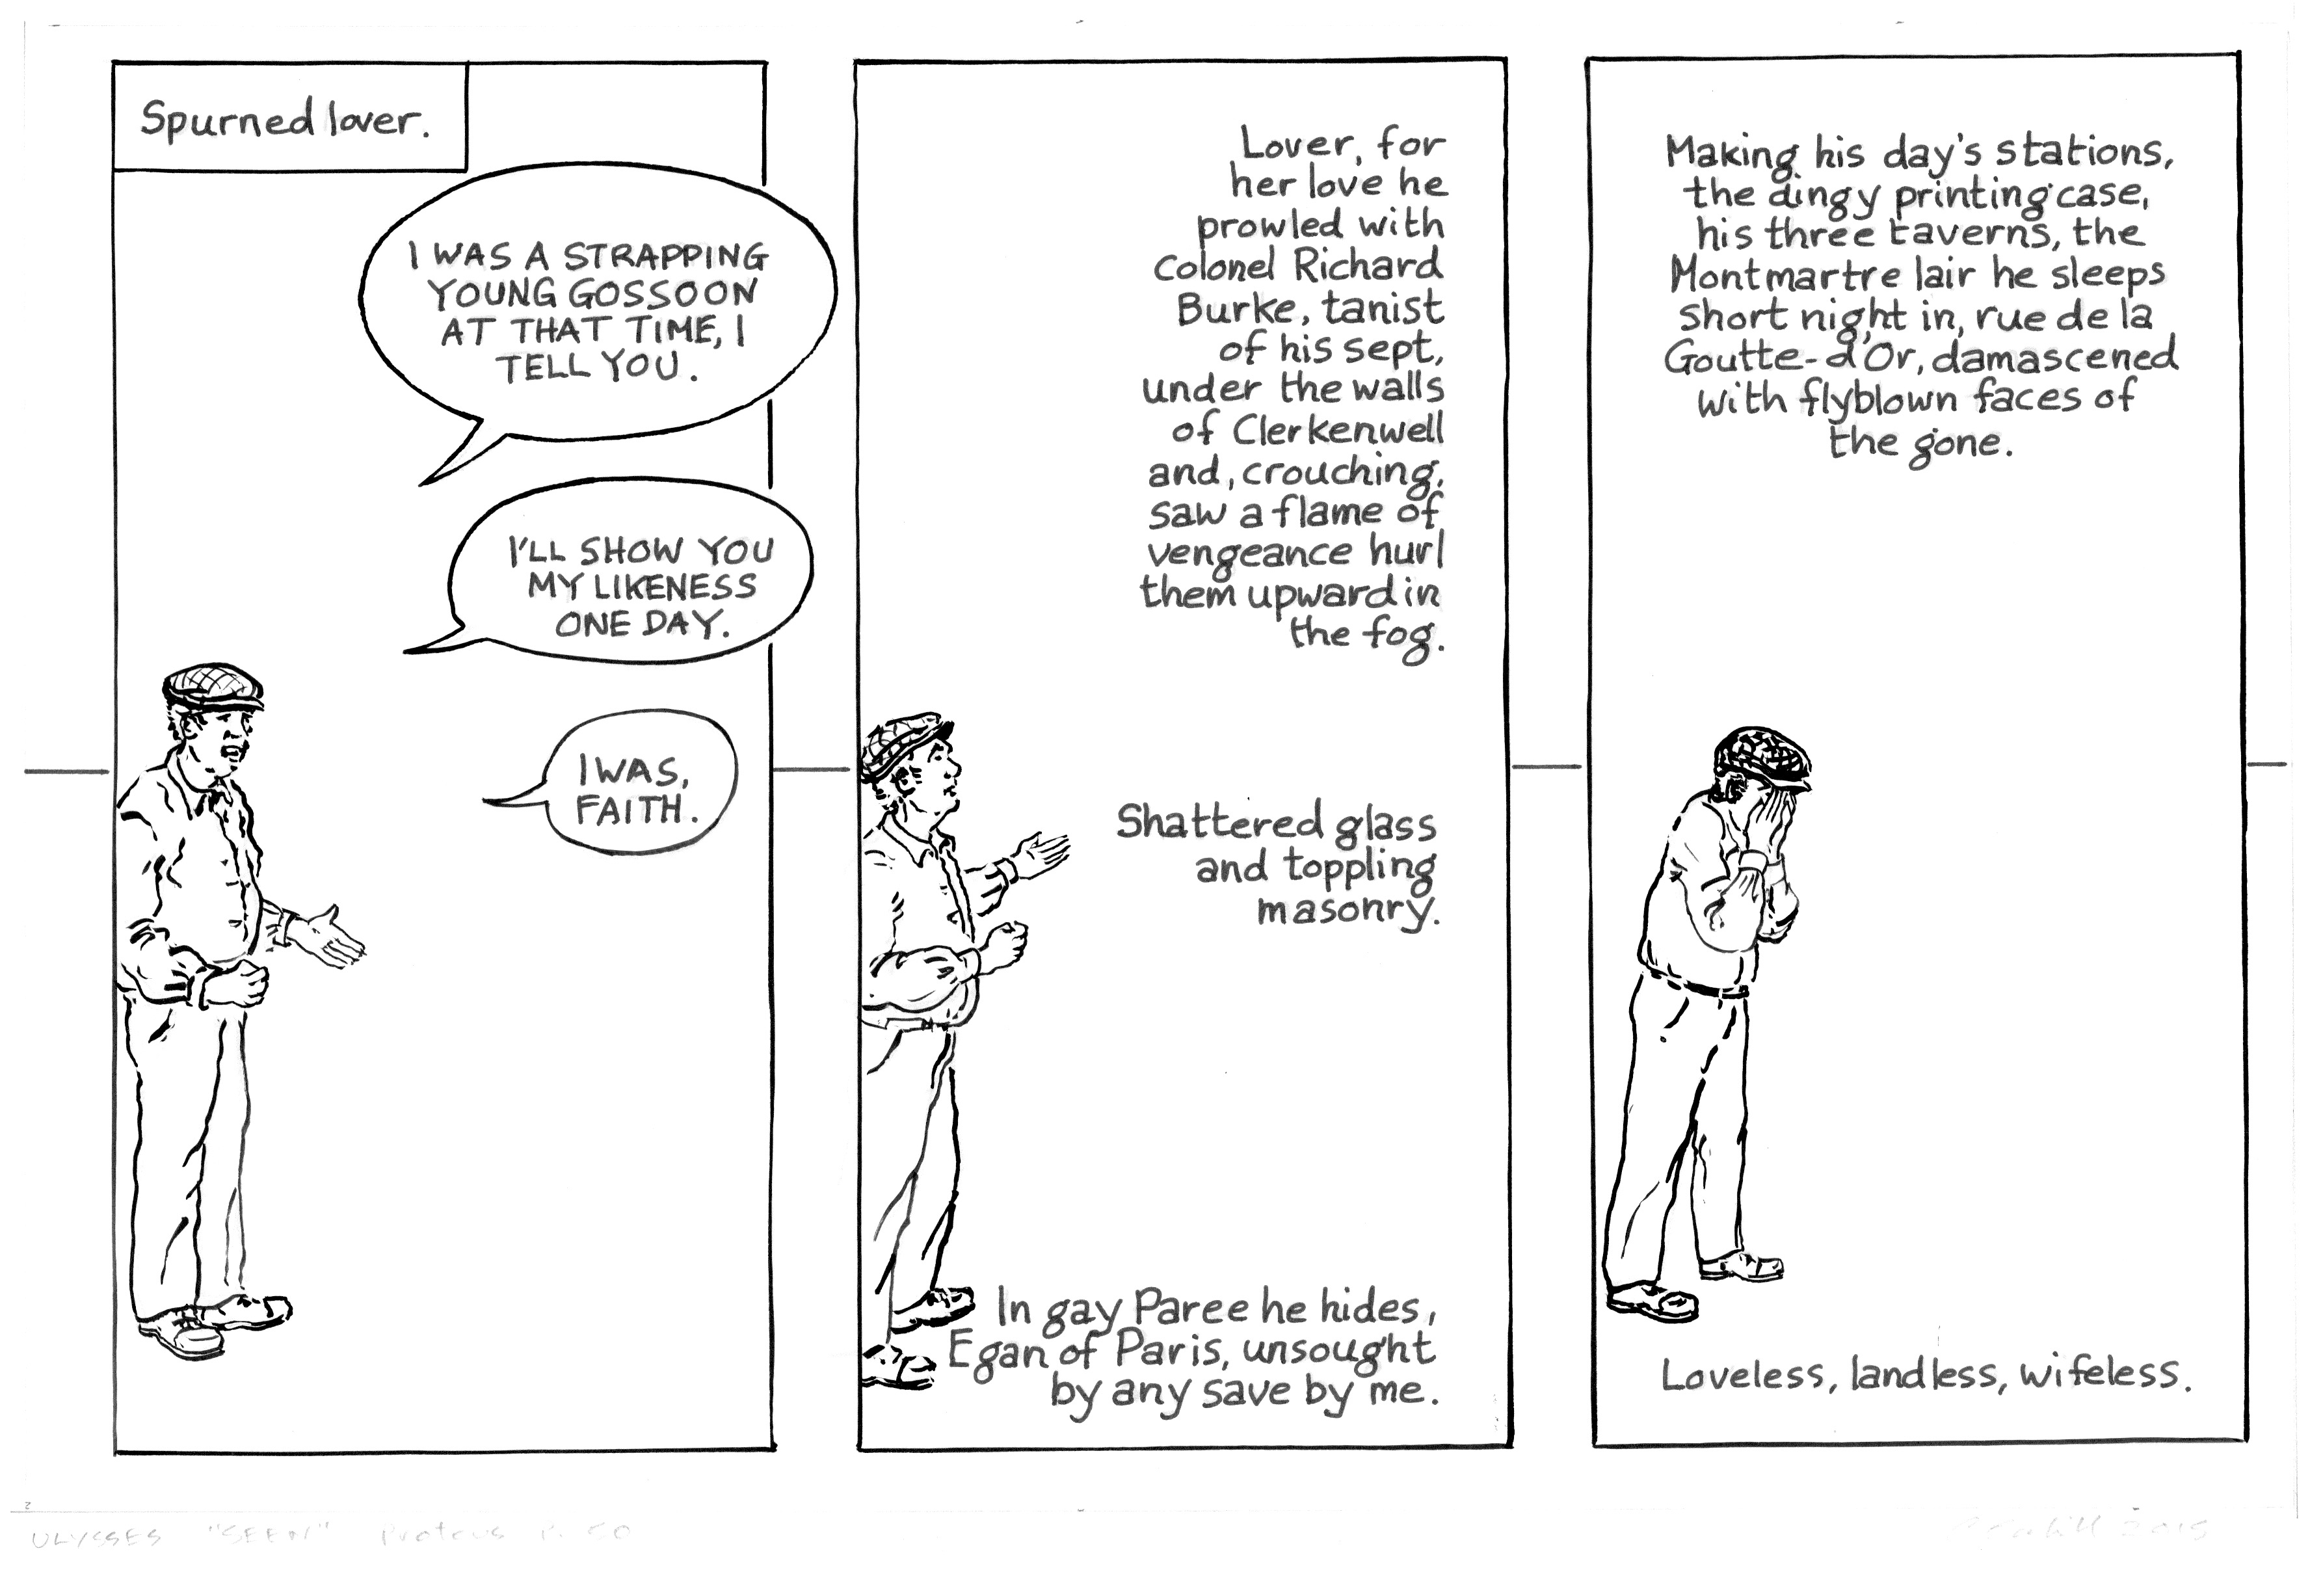 Spurned lover.
I WAS A STRAPPING
YOUNG GOSSOON
AT THAT TIME, I
TELL YOU.
I'LL SHOW YOU
MY LIKENESS
ONE DAY.
I WAS,
FAITH.
Lover, for
her love he
prowled with
colonel Richard
Burke, tanist
of his sept,
under the walls
of Clerkenwell
and, crouching,
saw a flame of
vengeance hurl
them upward in
the fog.
Shattered glass
and toppling
masonry.
In gay Paree he hides,
Egan of Paris, unsought
by any save by me.
Making his day's stations,
the dingy printingcase,
his three taverns, the
Montmartre lair he sleeps
short night in, rue de la
Goutte-d'Or, damascened
with flyblown faces of
the gone.
Loveless, landless, wifeless.
2
ULYSSES "SEEN" Proteus P. 50
2015